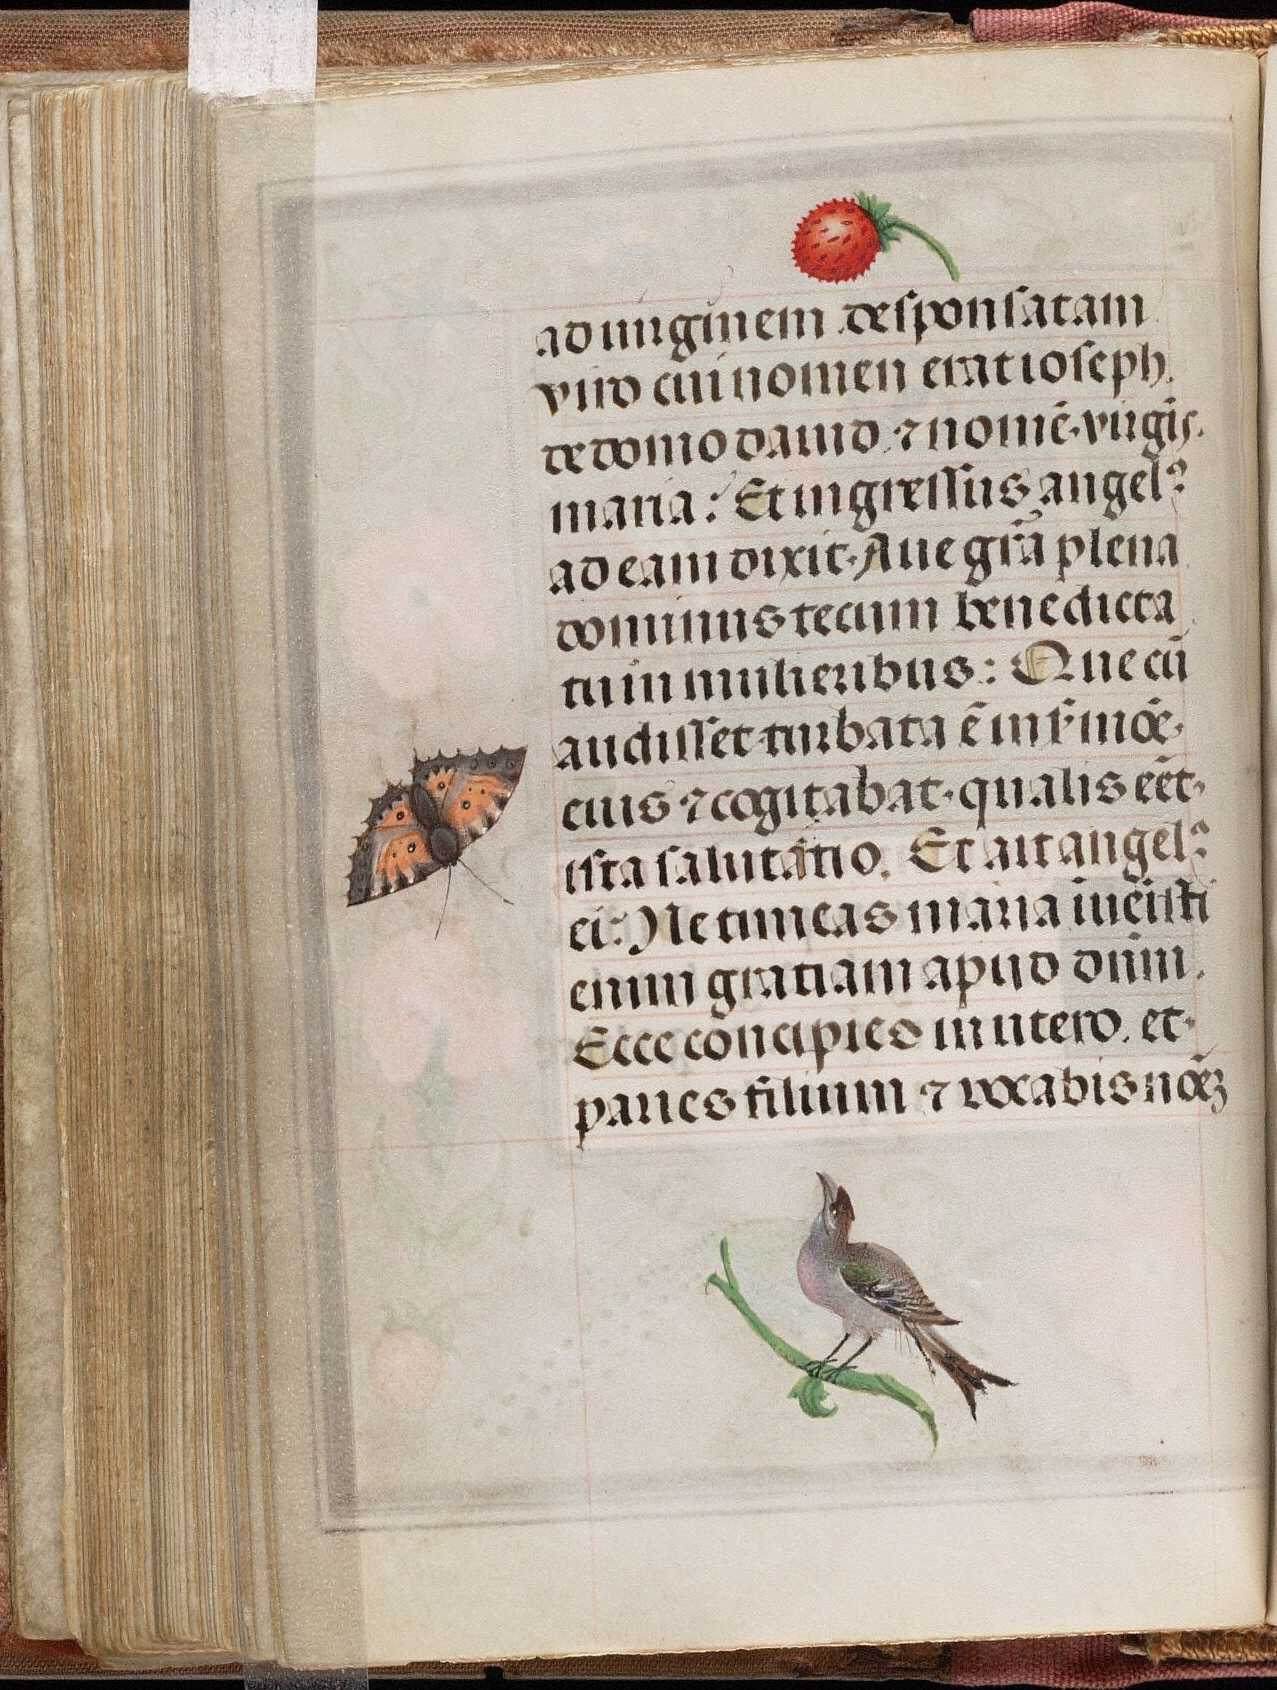 ad uirginem desponsatam
viro cui nomen erat ioseph.
de domo dauid. ⁊ nomē virgīs.
maria: Et ingressus angelꝰ
ad eam dixit. Aue grā plena
dominus tecum benedicta
tu in mulieribus: Que cū
audisset turbata ē in
eius ⁊ cogitabat. qualis eēt.
ista salutatio. Et ait angelꝰ
ei: Ne timeas maria iuēisti
enim gratiam apud dn̄m.
Ecce concipies in utero. et
paries filium ⁊ vocabis